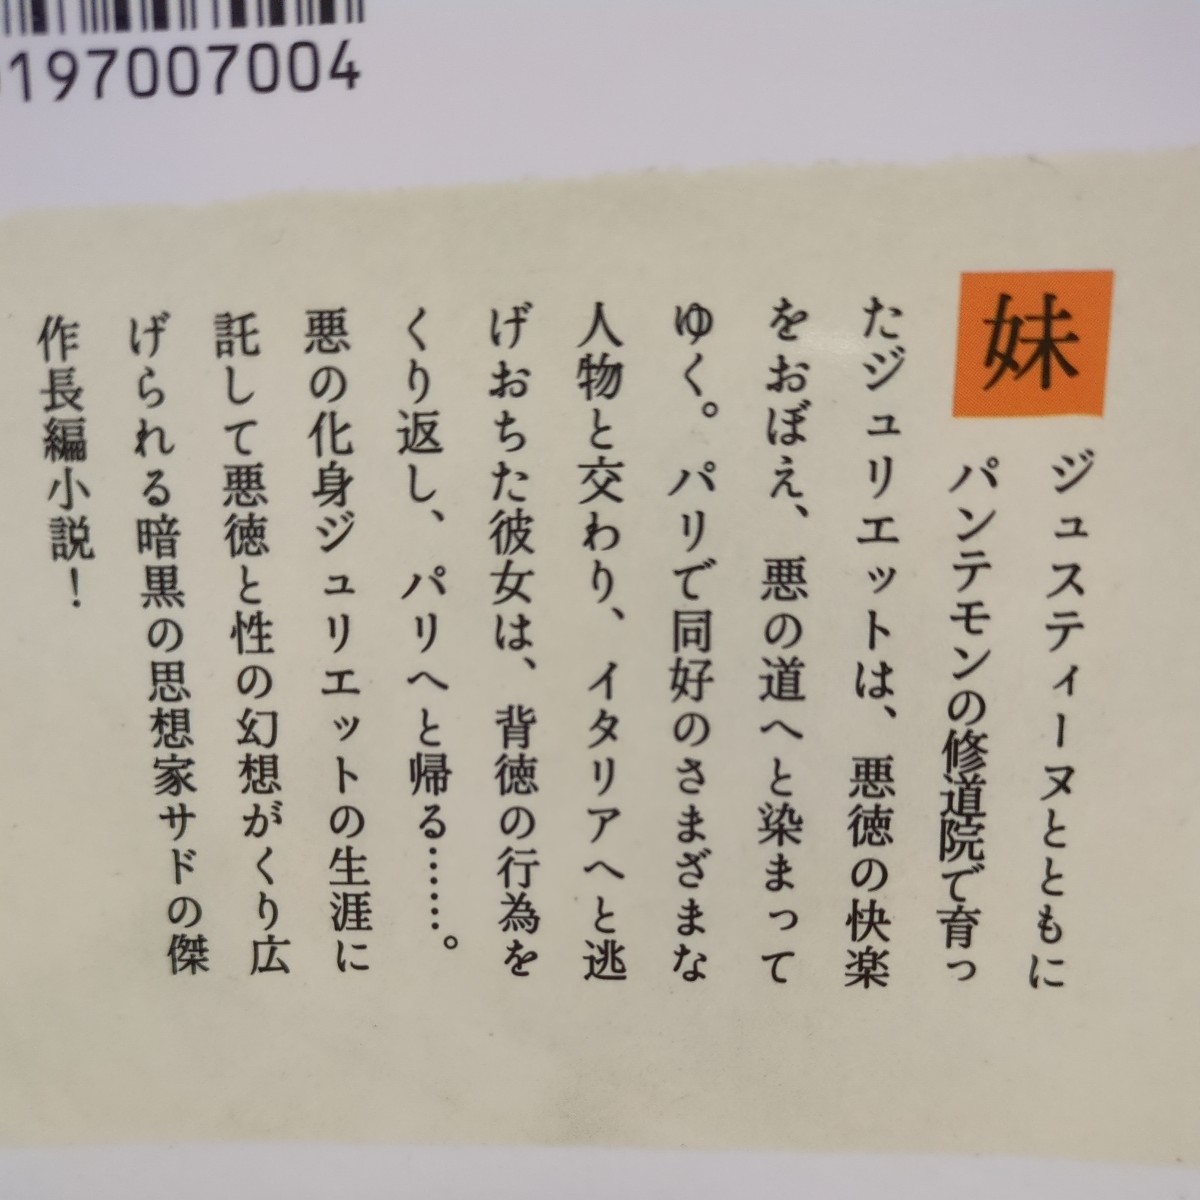 197007004
妹
ジュスティーヌとともに
パンテモンの修道院で育っ
たジュリエットは、悪徳の快楽
をおぼえ、悪の道へと染まって
ゆく。パリで同好のさまざまな
人物と交わり、イタリアへと逃
げおちた彼女は、背徳の行為を
くり返し、パリへと帰る……。
悪の化身ジュリエットの生涯に
託して悪徳と性の幻想がくり広
げられる暗黒の思想家サドの傑
作長編小説！